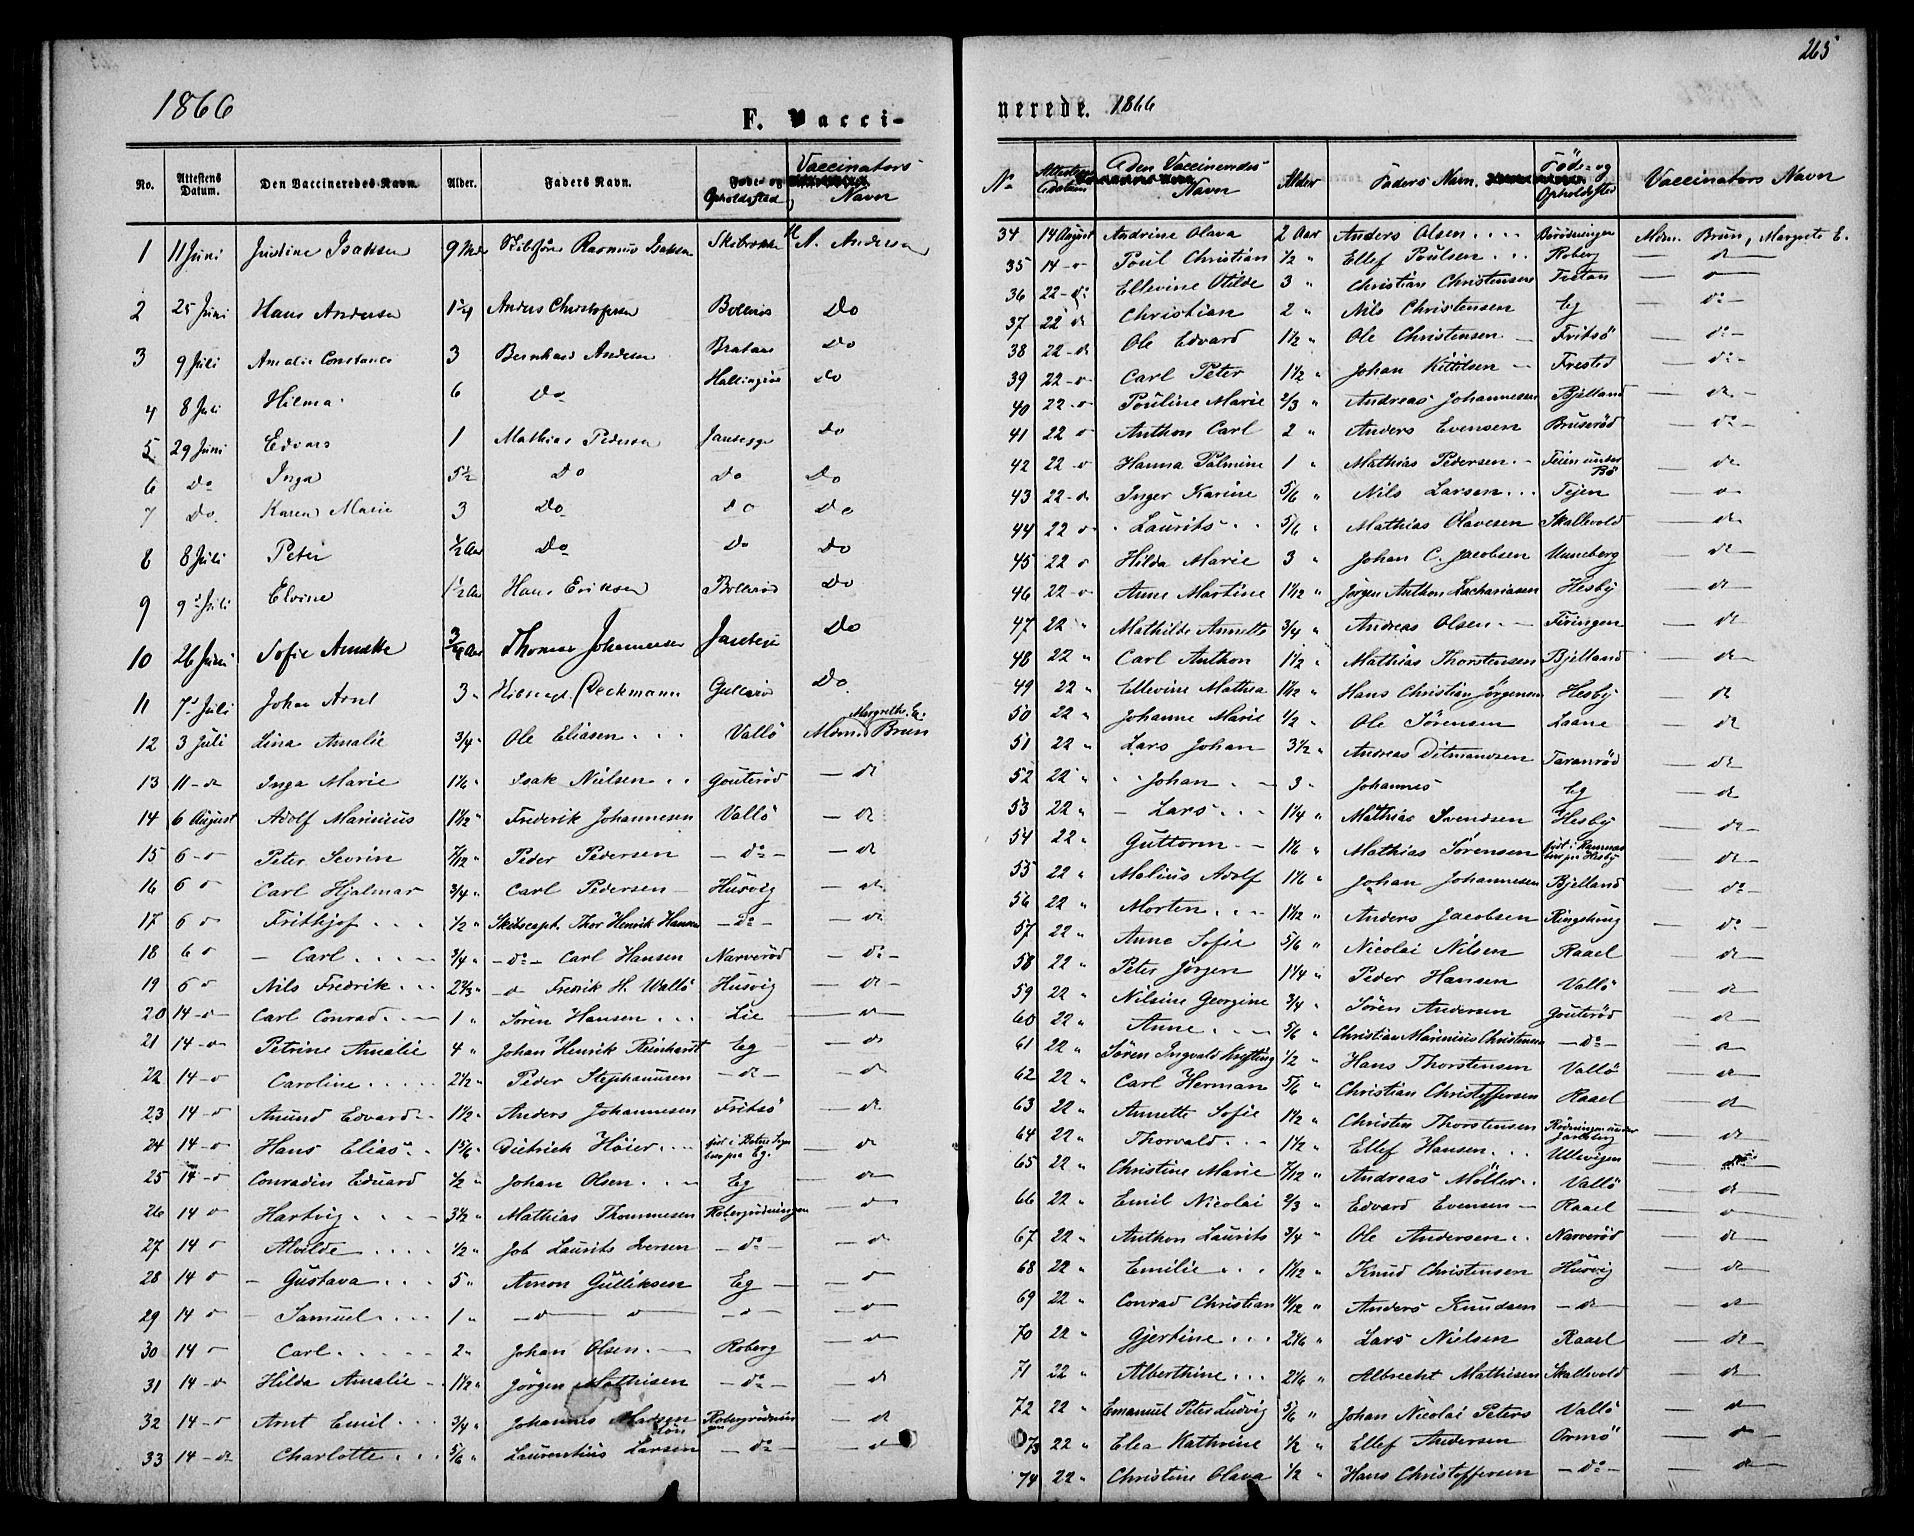 265
1866
F. Vacci-
No. Attestens Datum. Den Vaccineredes Navn. Alder. Faders Navn. Føde- og Opholdssted Vaccinators Navn
1 11 Juni Justine Isaksen 9 Rasmus Isaksen A. Andersen
2 25 Juni Hans Andersen 1 1/4 Anders Christofersen Do
3 9 Juli Amalie Constance 3 Bernhard Andersen Do
4 8 Juli Hilma 6 Do Do
5 29 Juni Edvard 1 Mathias Pedersen Do
6 Do Inga 5 1/2 Do Do Do
7 Do Karen Marie 3 Do Do Do
8 8 Juli Peter 1/2 Aar Do Do Do
9 9 Juli Elvine 1 1/2 Aar Hans Eriksen Bollerød Do
10 26 Juni Sofie Annette 3/4 Aar Thomas Johannessen Do
11 7 Juli Johan Arnt 3 " Beckmann Do
12 3 Juli Lina Amalie 3/4 " Ole Eliasen Vallö Mdme Margrethe E. Brun
13 11 - do Inga Marie 1 1/6 " Isak Nielsen Gouteröd - do
14 6 August Adolf Marinius 1 1/2 " Frederik Johannesen Vallö - do
15 6 - o Peter Severin 7/12 " Peder Pedersen - do - - do
16 6 o Carl Hjalmar 3/4 " Carl Pedersen Husvig - do
17 6 o Frithjof 1/2 " Skibscapt. Thor Henrik Hansen - do - - do
18 6 o Carl 3/4 " - do - Carl Hansen Narveröd - do -
19 6 o Nils Fredrik 2 2/3 " - o Fredrik H. Wallö Husvig - do -
20 14 - o Carl Conrad 1 " Sören Hansen Lie - o -
21 14 - o Petrine Amalie 4 " Johan Henrik Reinhardt Eg - do
22 14 - o Caroline 2 1/2 " Peder Stephansen - do - - do
23 14 - o Amund Edvard 1 1/2 " Anders Johannesen Fritsö - do
24 14 - o Hans Elias 1 5/6 " Dietrich Höier Eg. - do
25 14 - o Conradin Eduard 1/2 " Johan Olsen Eg - do
26 14 o Hartvig 3 1/2 " Mathias Thommesen Robergrödningen - o
27 14 o Alvilde 1/2 " Job Laurits Iversen - do - - do
28 14 o Gustava 5 " Amon Gulliksen Eg - o
29 14 o Samuel 1 " - o o - o - - o
30 14 - Carl 2 " Johan Olsen Roberg - o
31 14 - o Hilda Amalie 1 1/2 " Jörgen Mathisen - do - - do
32 14 - o Arnt Emil 3/4 " Johannes Madsen Robergrödningen - do
33 14 - do Charlotte 5/6 " Laurentius Larsen - do - - do
nerede. 1866
No Attestens Datum Den Vaccineredes Navn Alder Faders Navn. Föde- og Opholdssted Vaccinators Navn
34 14 August Andrine Olava 2 Aar Anders Olsen Mdm. Brun, Margrete E.
35 14 - o Poul Christian 1/2 " Ellef Poulsen Roberg - do -
36 22 - do Ellevine Otilde 3 " Christian Christensen - o -
37 22 do Christian 2 " Nils Christensen Eg - do -
38 22 - do Ole Edvard 1 1/2 " Ole Christensen Fritsö - do -
39 22 - o Carl Peter 1 1/2 " Johan Kittilsen Frested - do -
40 22 - o Pouline Marie 2/3 " Andreas Johannesen Bjelland - do -
41 22 o Anthon Carl 2 " Anders Evensen Bruseröd - do -
42 22 - o Hanna Palmine 1 " Mathias Pedersen Teien under Bö - do
43 22 - do Inger Karine 5/6 " Nils Larsen Tejen - o
44 22 o Laurits 5/6 " Mathias Olavesen Skallevold - do
45 22 o Hilda Marie 3 " Johan C. Jacobsen Unneberg - do -
46 22 - o Anne Martine 1 1/2 " Jörgen Anthon Zachariasen Hesby - do -
47 22 " Mathilde Annette 3/4 " Andreas Olsen - do
48 22 " Carl Anthon 1 1/2 " Mathias Thorstensen Bjelland - do -
49 22 " Ellevine Mathea 1 1/2 " Hans Christian Jörgensen Hesby - do
50 22 " Johanne Marie 1/2 " Ole Sörensen Laane - do
51 22 " Lars Johan 3 1/2 " Andreas Ditmandsen Taranröd - do
52 22 " Johan 3 " Johannes Eg - do
53 22 " Lars 1 1/4 " Mathias Svendsen Hesby - do -
54 22 " Guttorm 1 1/6 " Mathias Sörensen Hesby - do -
55 22 " Malius Adolf 1 1/6 " Johan Johannesen Bjelland - do -
56 22 " Morten 1 1/2 " Anders Jacobsen Ringshoug - do -
57 22 " Anne Sofie 5/6 " Nicolai Nilsen Raael - do -
58 22 " Peter Jörgen 1 1/4 " Peder Hansen Vallö - do -
59 22 " Nilsine Georgine 3/4 " Sören Andersen Gouteröd - do -
60 22 " Anne 5/6 " Christian Marinius Christensen - do - - o -
61 22 " Sören Ingvald Krefting 1/2 " Hans Thorstensen Vallö - do -
62 22 " Carl Herman 5/6 " Christian Christoffersen Raael - do
63 22 " Annette Sofie 1 1/2 " Christen Thorstensen Rödningen under Jarlsberg - do -
64 22 " Thorvald 1 1/2 " Ellef Hansen Ullevigen - do -
65 22 " Christine Marie 7/12 " Andreas Möller Vallö - do -
66 22 " Emil Nicolai 2/3 " Edvard Evensen Raael - o -
67 22 " Anthon Laurits 3/4 " Ole Andersen Narveröd - do -
68 22 " Emilie 1 1/2 " Knud Christensen Husvig - do -
69 22 " Conrad Christian 11/12 " Anders Knudsen - do - - do
70 22 " Gjertine 2 1/6 " Lars Nielsen Raael - do -
71 22 " Alberthine 2 1/6 " Albrecht Mathisen Skallevold - do
72 22 " Emanuel Peter Ludvig 5/6 " Johan Nicolai Peters Vallö - do -
73 22 " Elea Kathrine 1/2 " Ellef Andersen Ormö - o -
74 22 " Christine Olava 1/2 " Hans Christoffersen - do - - do -